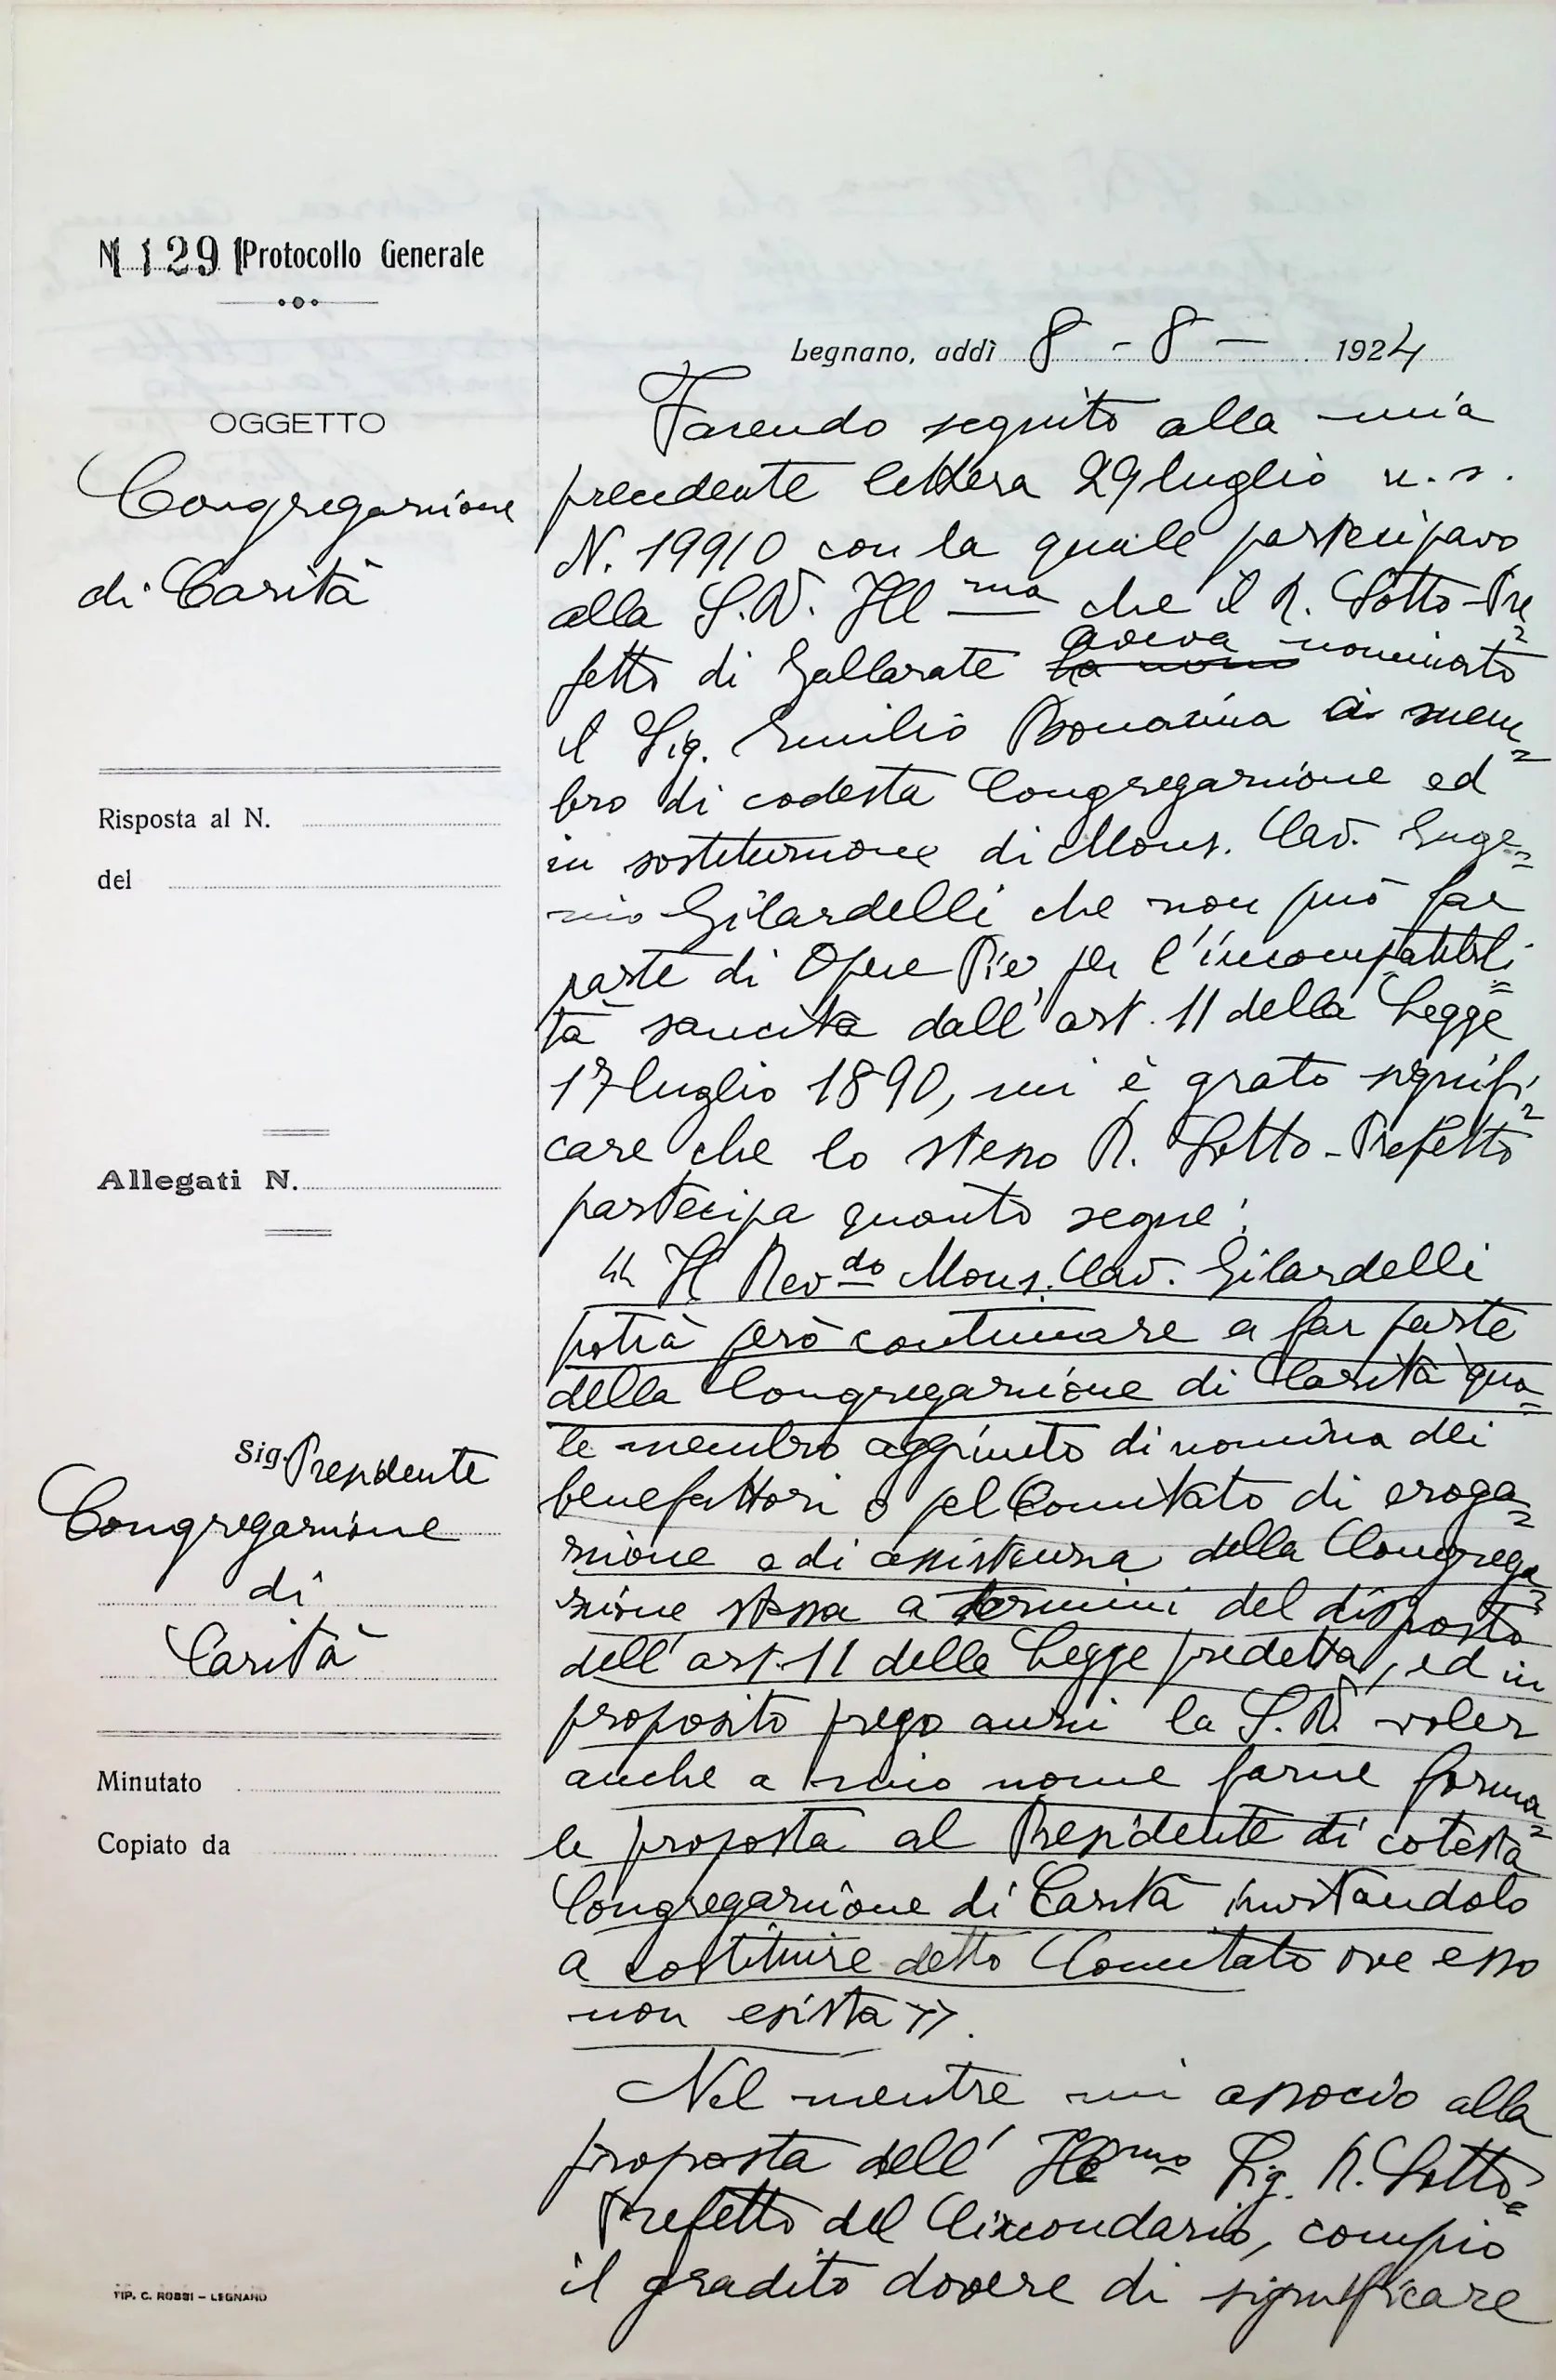 N. 1291 Protocollo Generale
OGGETTO
Congregazione
di Carità
Risposta al N.
del
Allegati N.
Sig. Presidente
Congregazione
di
Carità
Minutato
Copiato da
TIP. C. ROSSI – LEGNANO
Legnano, addì 8 - 8 - 1924
Facendo seguito alla mia
precedente lettera 29 luglio u. s.
N. 19910 con la quale partecipavo
alla S.V. Ill ma che il R. Sotto-Pre=
fetto di Gallarate ha nomi aveva nominato
il Sig. Emilio Bonazina a mem=
bro di codesta Congregazione ed
in sostituzione di Mons. Cav. Euge=
nio Gilardelli che non può far
parte di Opere Pie, per l'incompatibili=
tà sancita dall'art. 11 della Legge
17 luglio 1890, mi è grato signifi=
care che lo stesso R. Sotto-Prefetto
partecipa quanto segue:
"Il Rev do Mons. Cav. Gilardelli
potrà però continuare a far parte
della Congregazione di Carità qua=
le membro aggiunto di nomina dei
benefattori o pel Comitato di eroga=
zione e di assistenza della Congrega=
zione stessa a termini del disposto
dell'art. 11 della Legge predetta, ed in
proposito prego anzi la S.V. voler
anche a mio nome farne forma=
le proposta al Presidente di cotesta
Congregazione di Carità invitandolo
a costituire detto Comitato ove esso
non esista».
Nel mentre mi associo alla
proposta dell'Ill mo Sig. R. Sotto=
Prefetto del Circondario, compio
il gradito dovere di significare